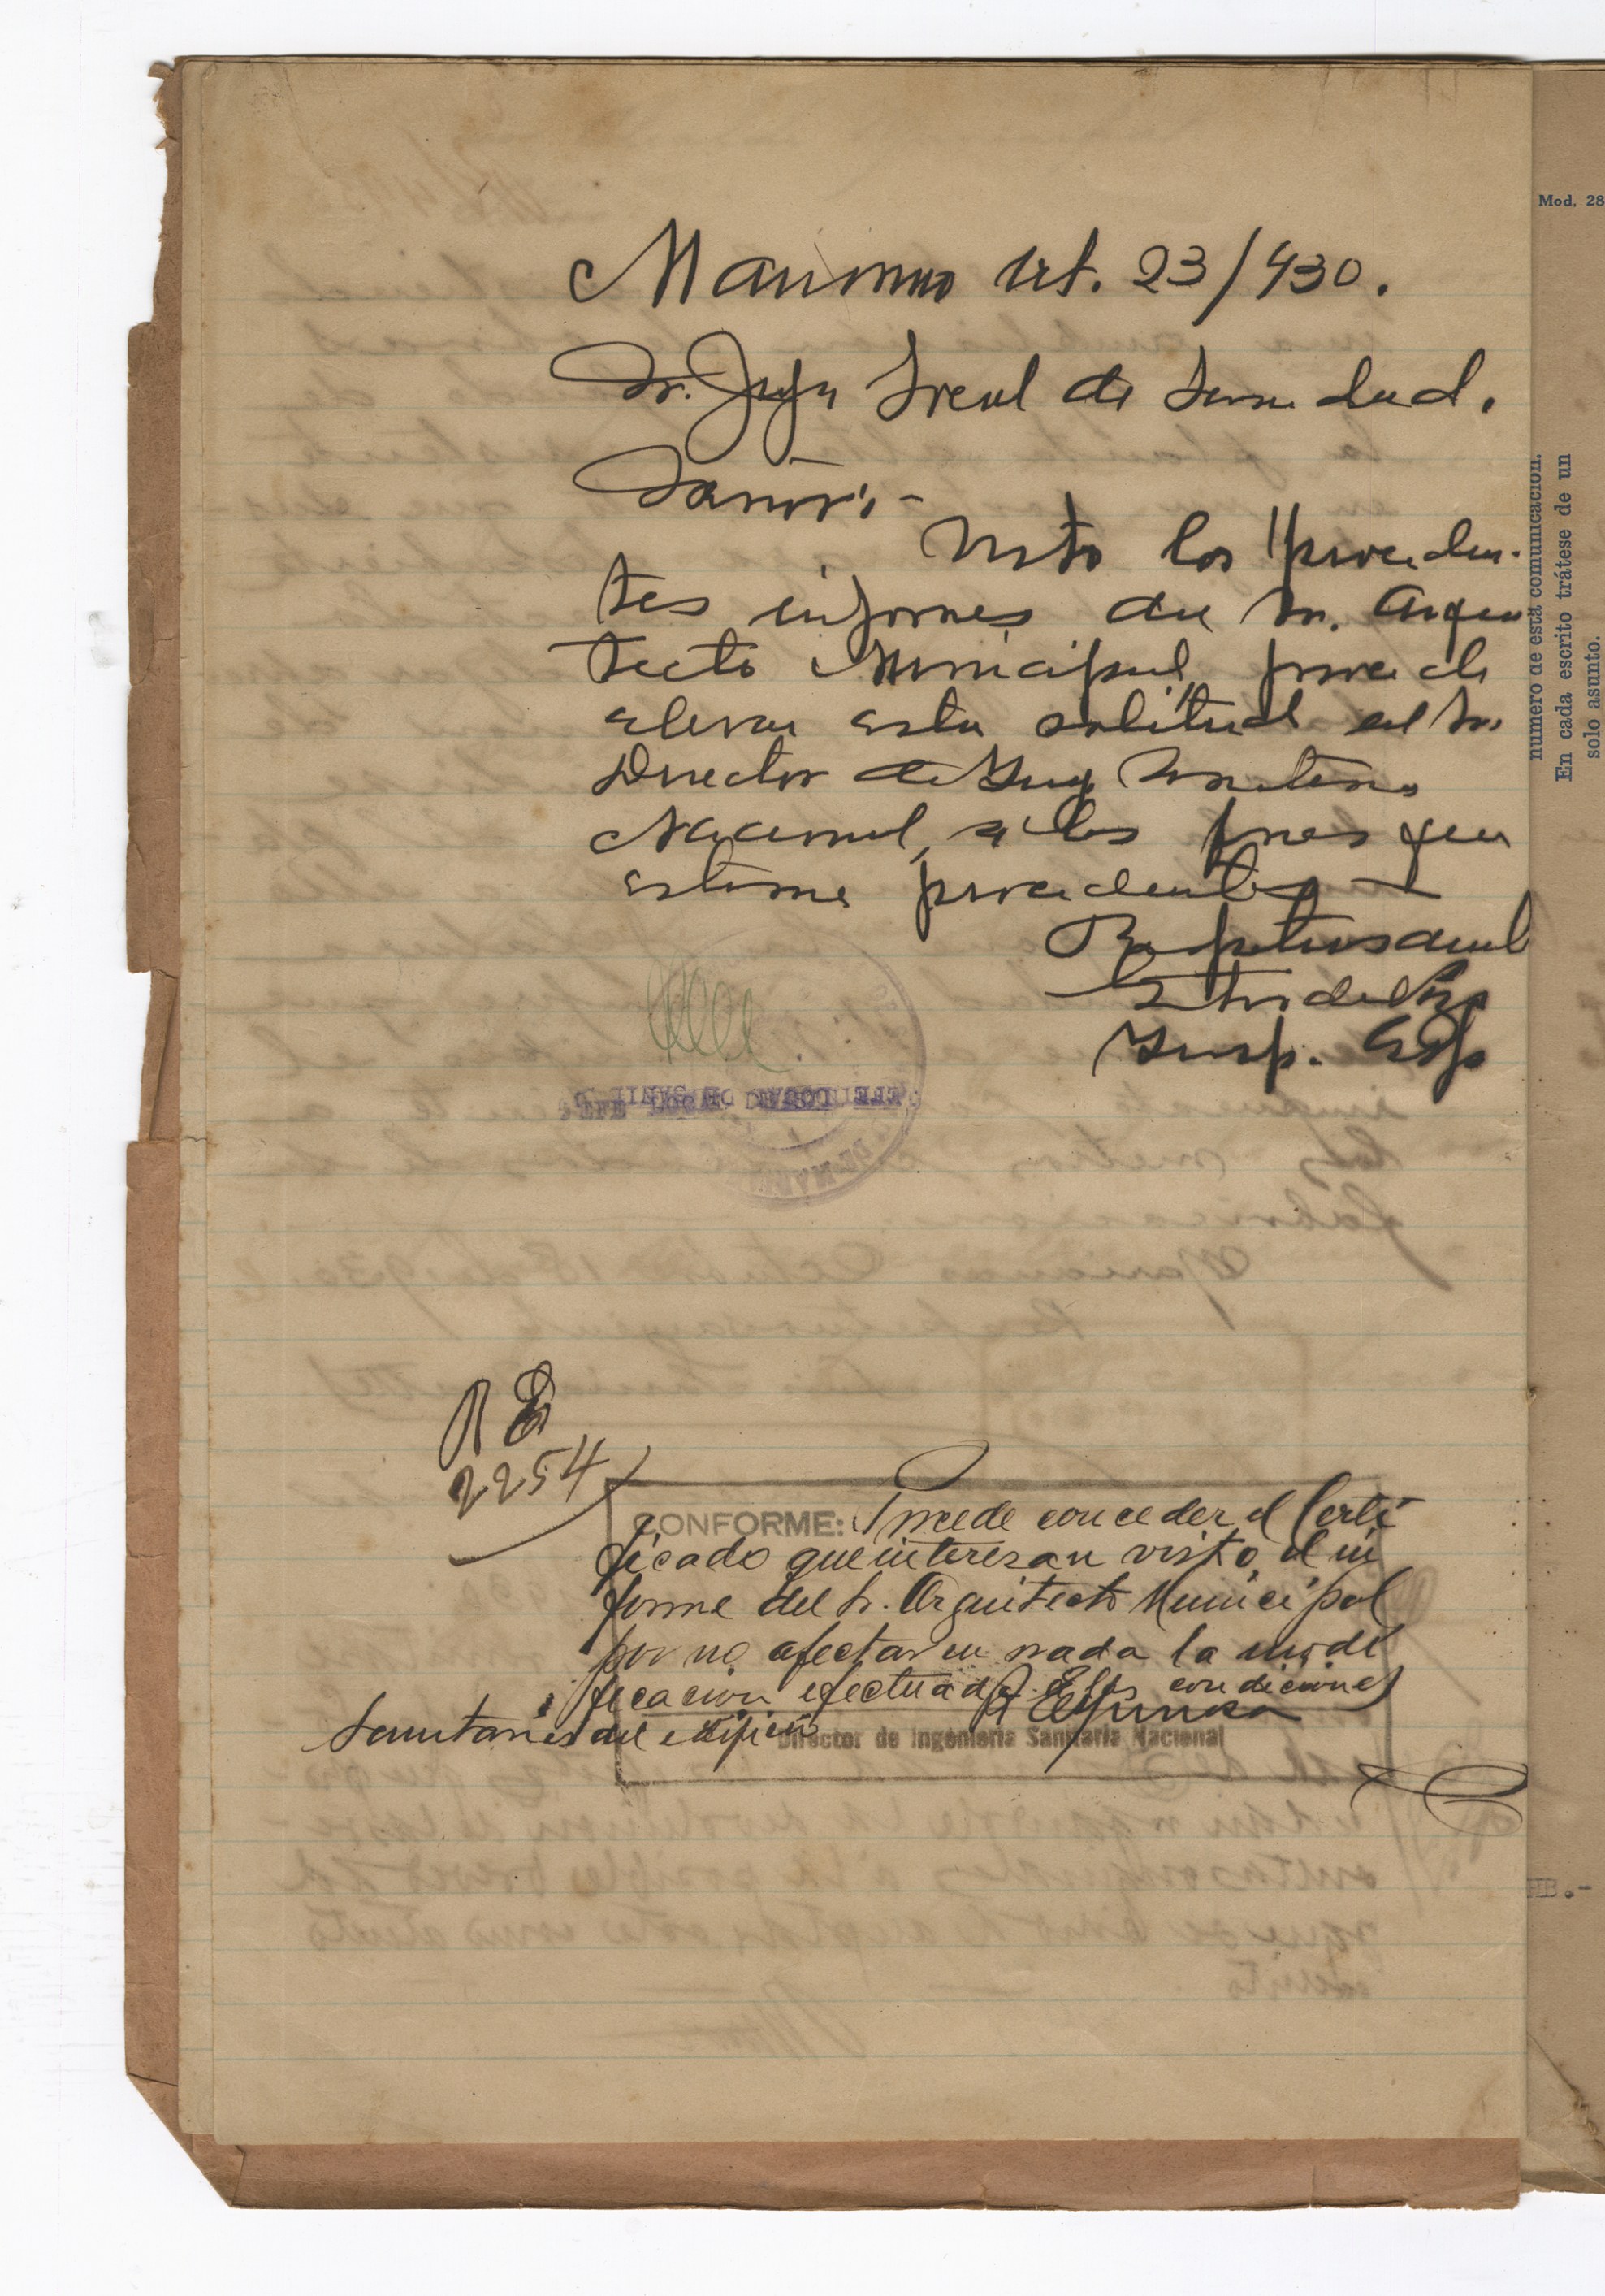 Marianao Oct. 23/930.
Sr. Jefe Local de Sanidad.
Señor:-
Visto los proceden-
tes informes del Sr. Arqui
tecto Municipal, procede
elevar esta solitud al Sr.
Director de Ing Sanitaria
Nacional, a los fines que
estime procedentes
Respetuosament
Insp. Esp
R E
2254
CONFORME: Procede conceder el Certi
ficado que interesan visto el in
forme del Sr. Arquitecto Municipal
por no afectar en nada la modi
ficacion efectuada a las condiciones
Sanitarias del edificio
Director de Ingeniería Sanitaria Nacional
Mod. 28
número de está comunicación.
En cada escrito trátese de un
solo asunto.
HB.-